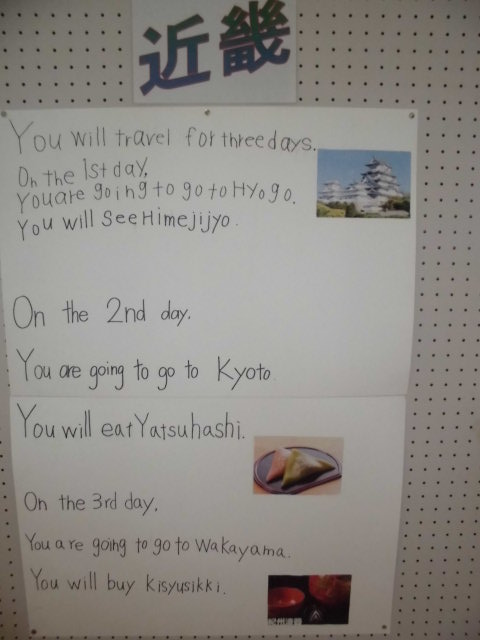 近畿
You will travel for three days.
On the 1st day,
You are going to go to Hyogo.
You will see Himejijyo.
On the 2nd day.
You are going to go to Kyoto.
You will eat Yatsuhashi.
On the 3rd day,
You are going to go to Wakayama.
You will buy kisyusikki.